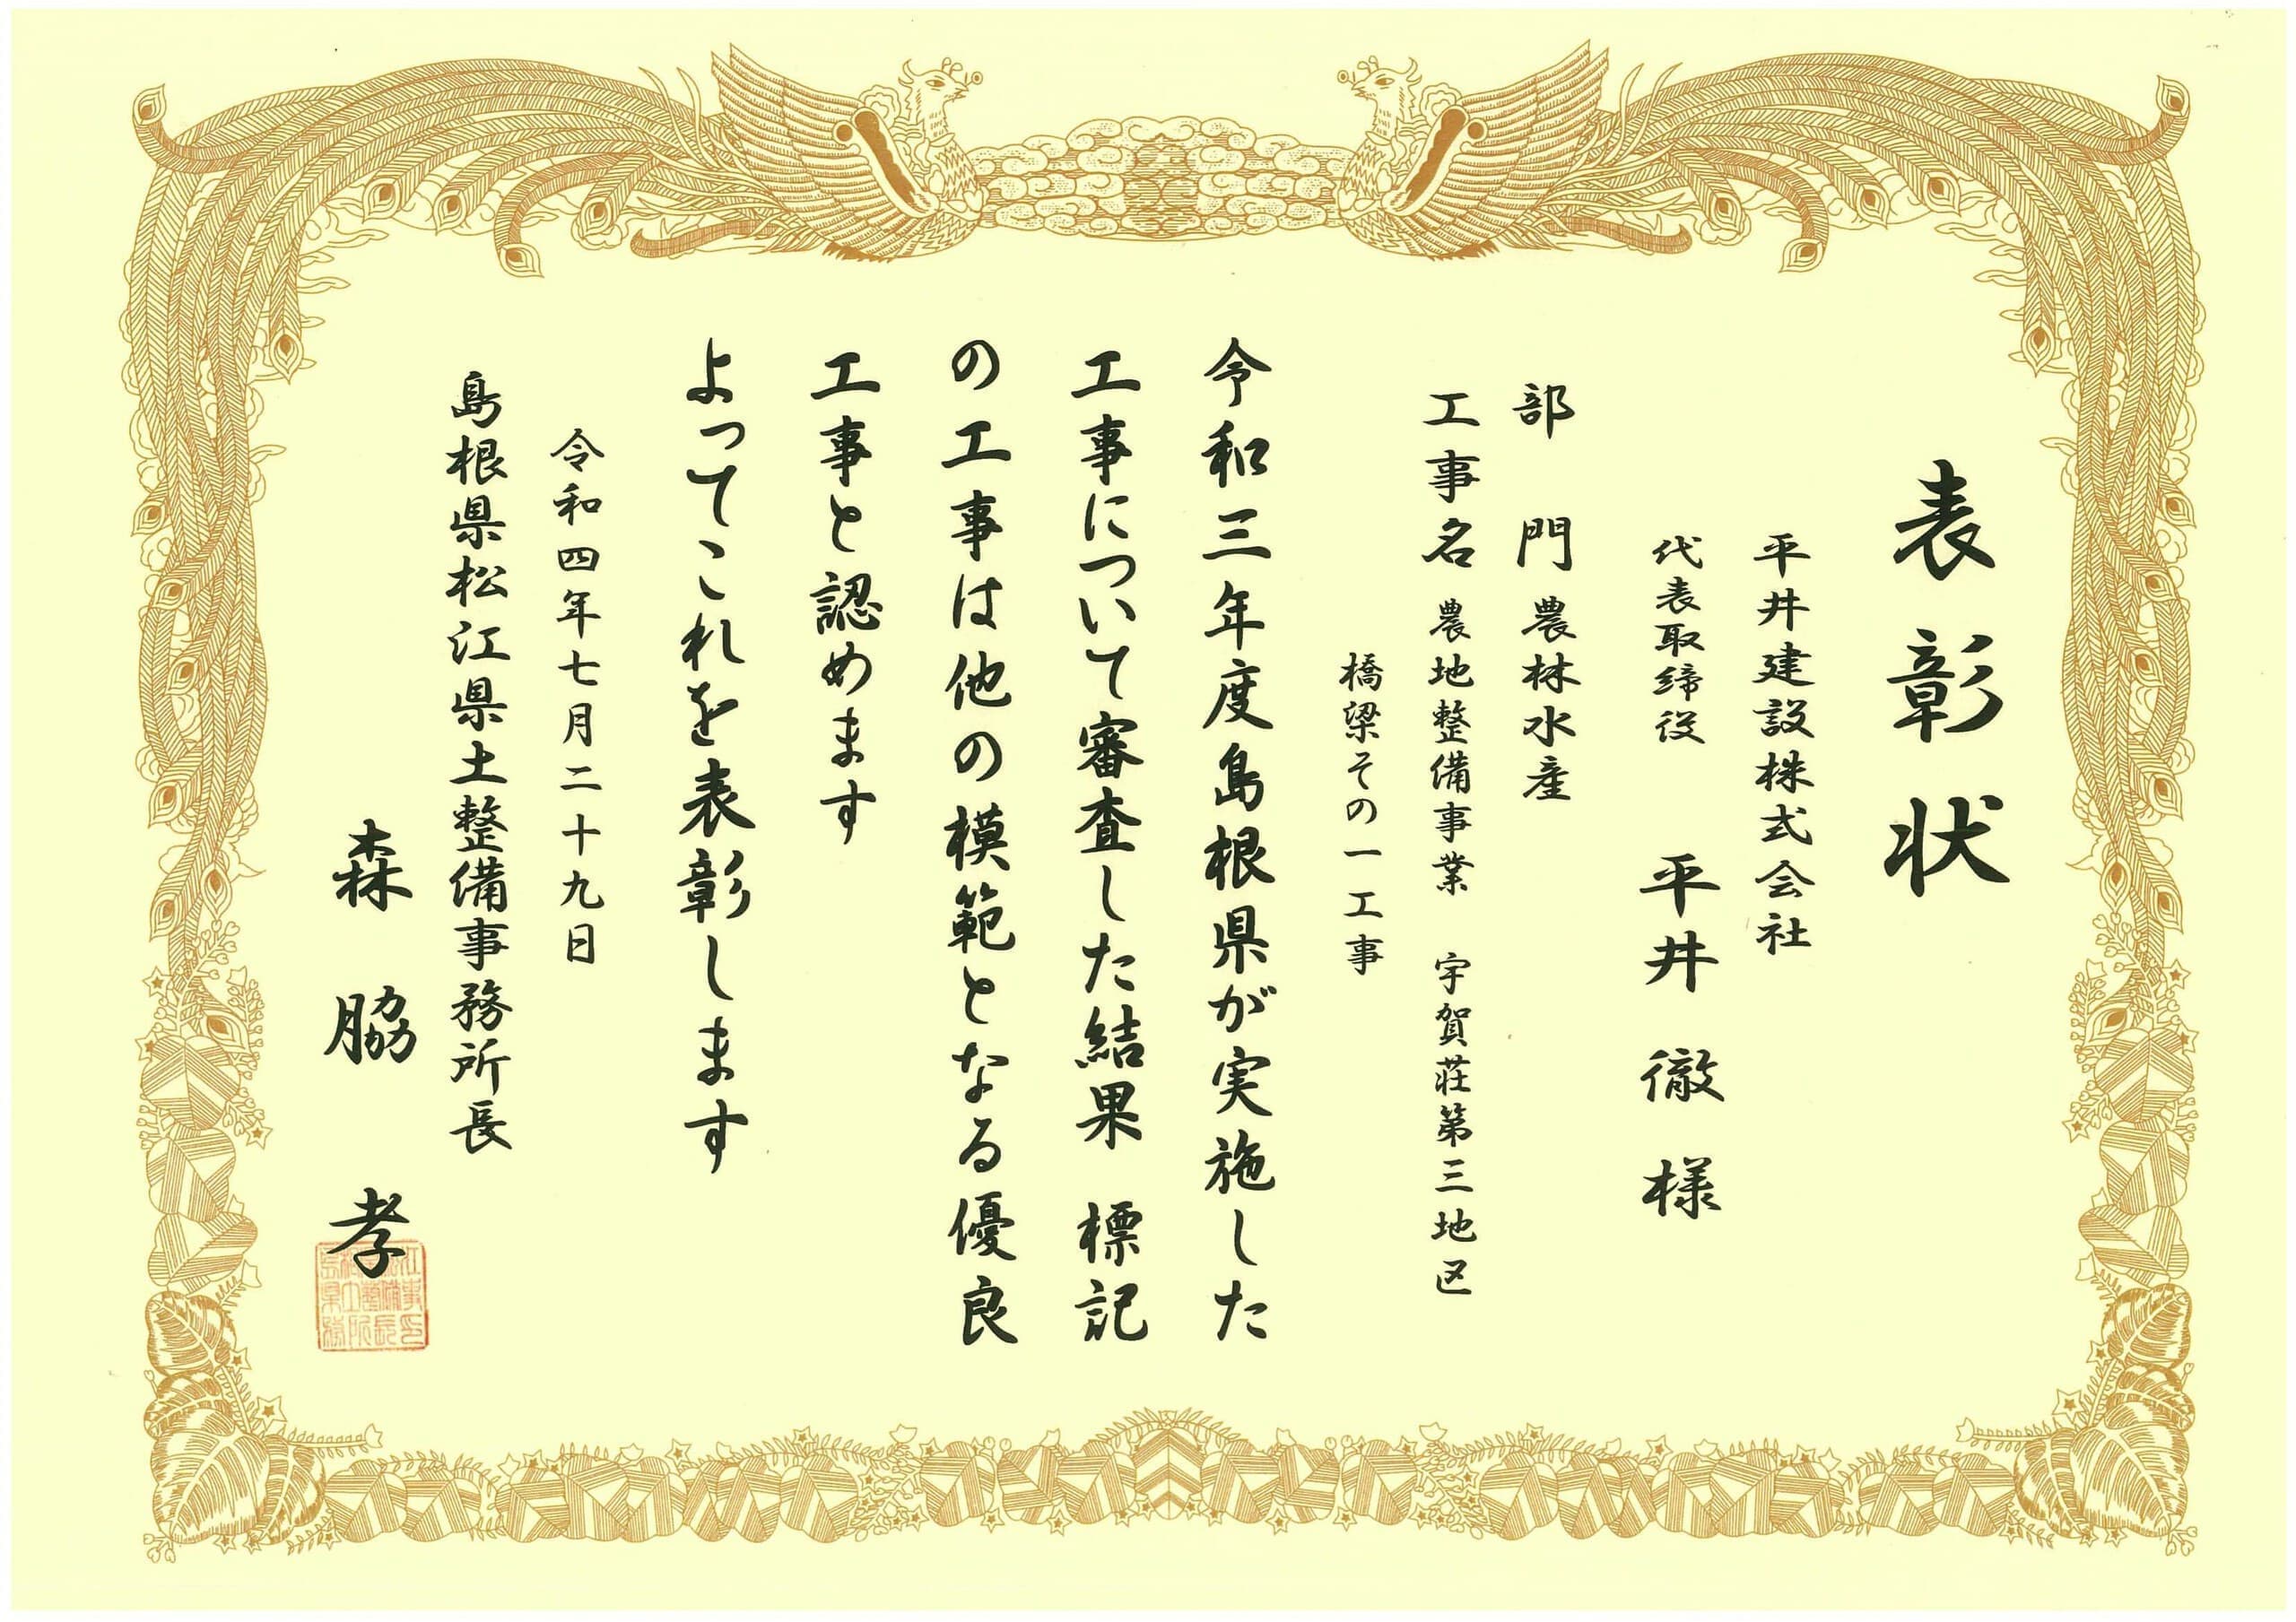 表彰状
平井建設株式会社
代表取締役 平井 徹 様
部 門 農林水産
工事名 農地整備事業 宇賀荘第三地区
橋梁その一工事
令和三年度島根県が実施した
工事について審査した結果 標記
の工事は他の模範となる優良
工事と認めます
よってこれを表彰します
令和四年七月二十九日
島根県松江県土整備事務所長
森 脇 孝